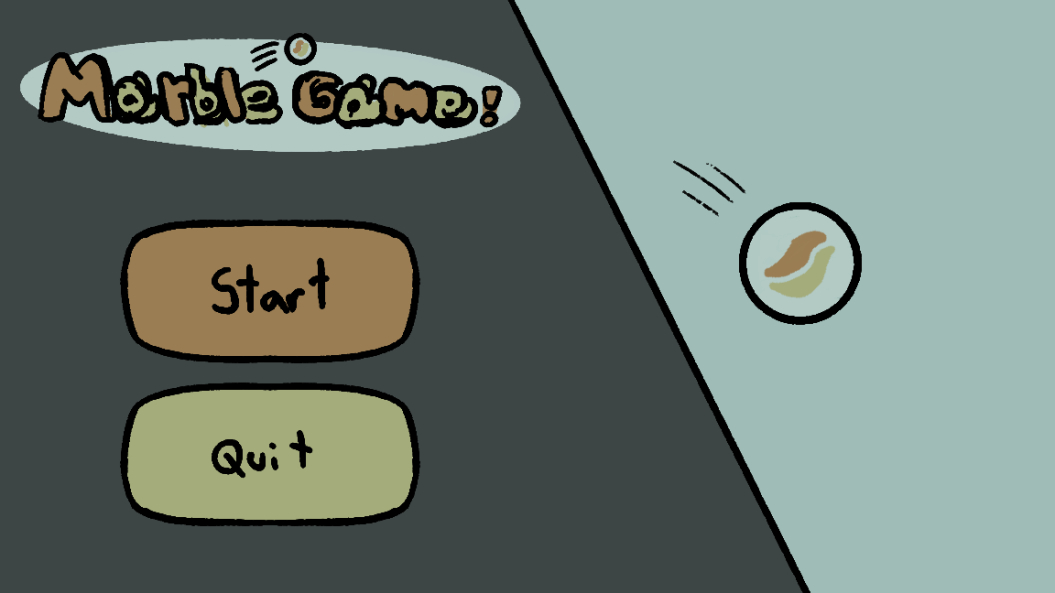 Marble Game!
Start
Quit